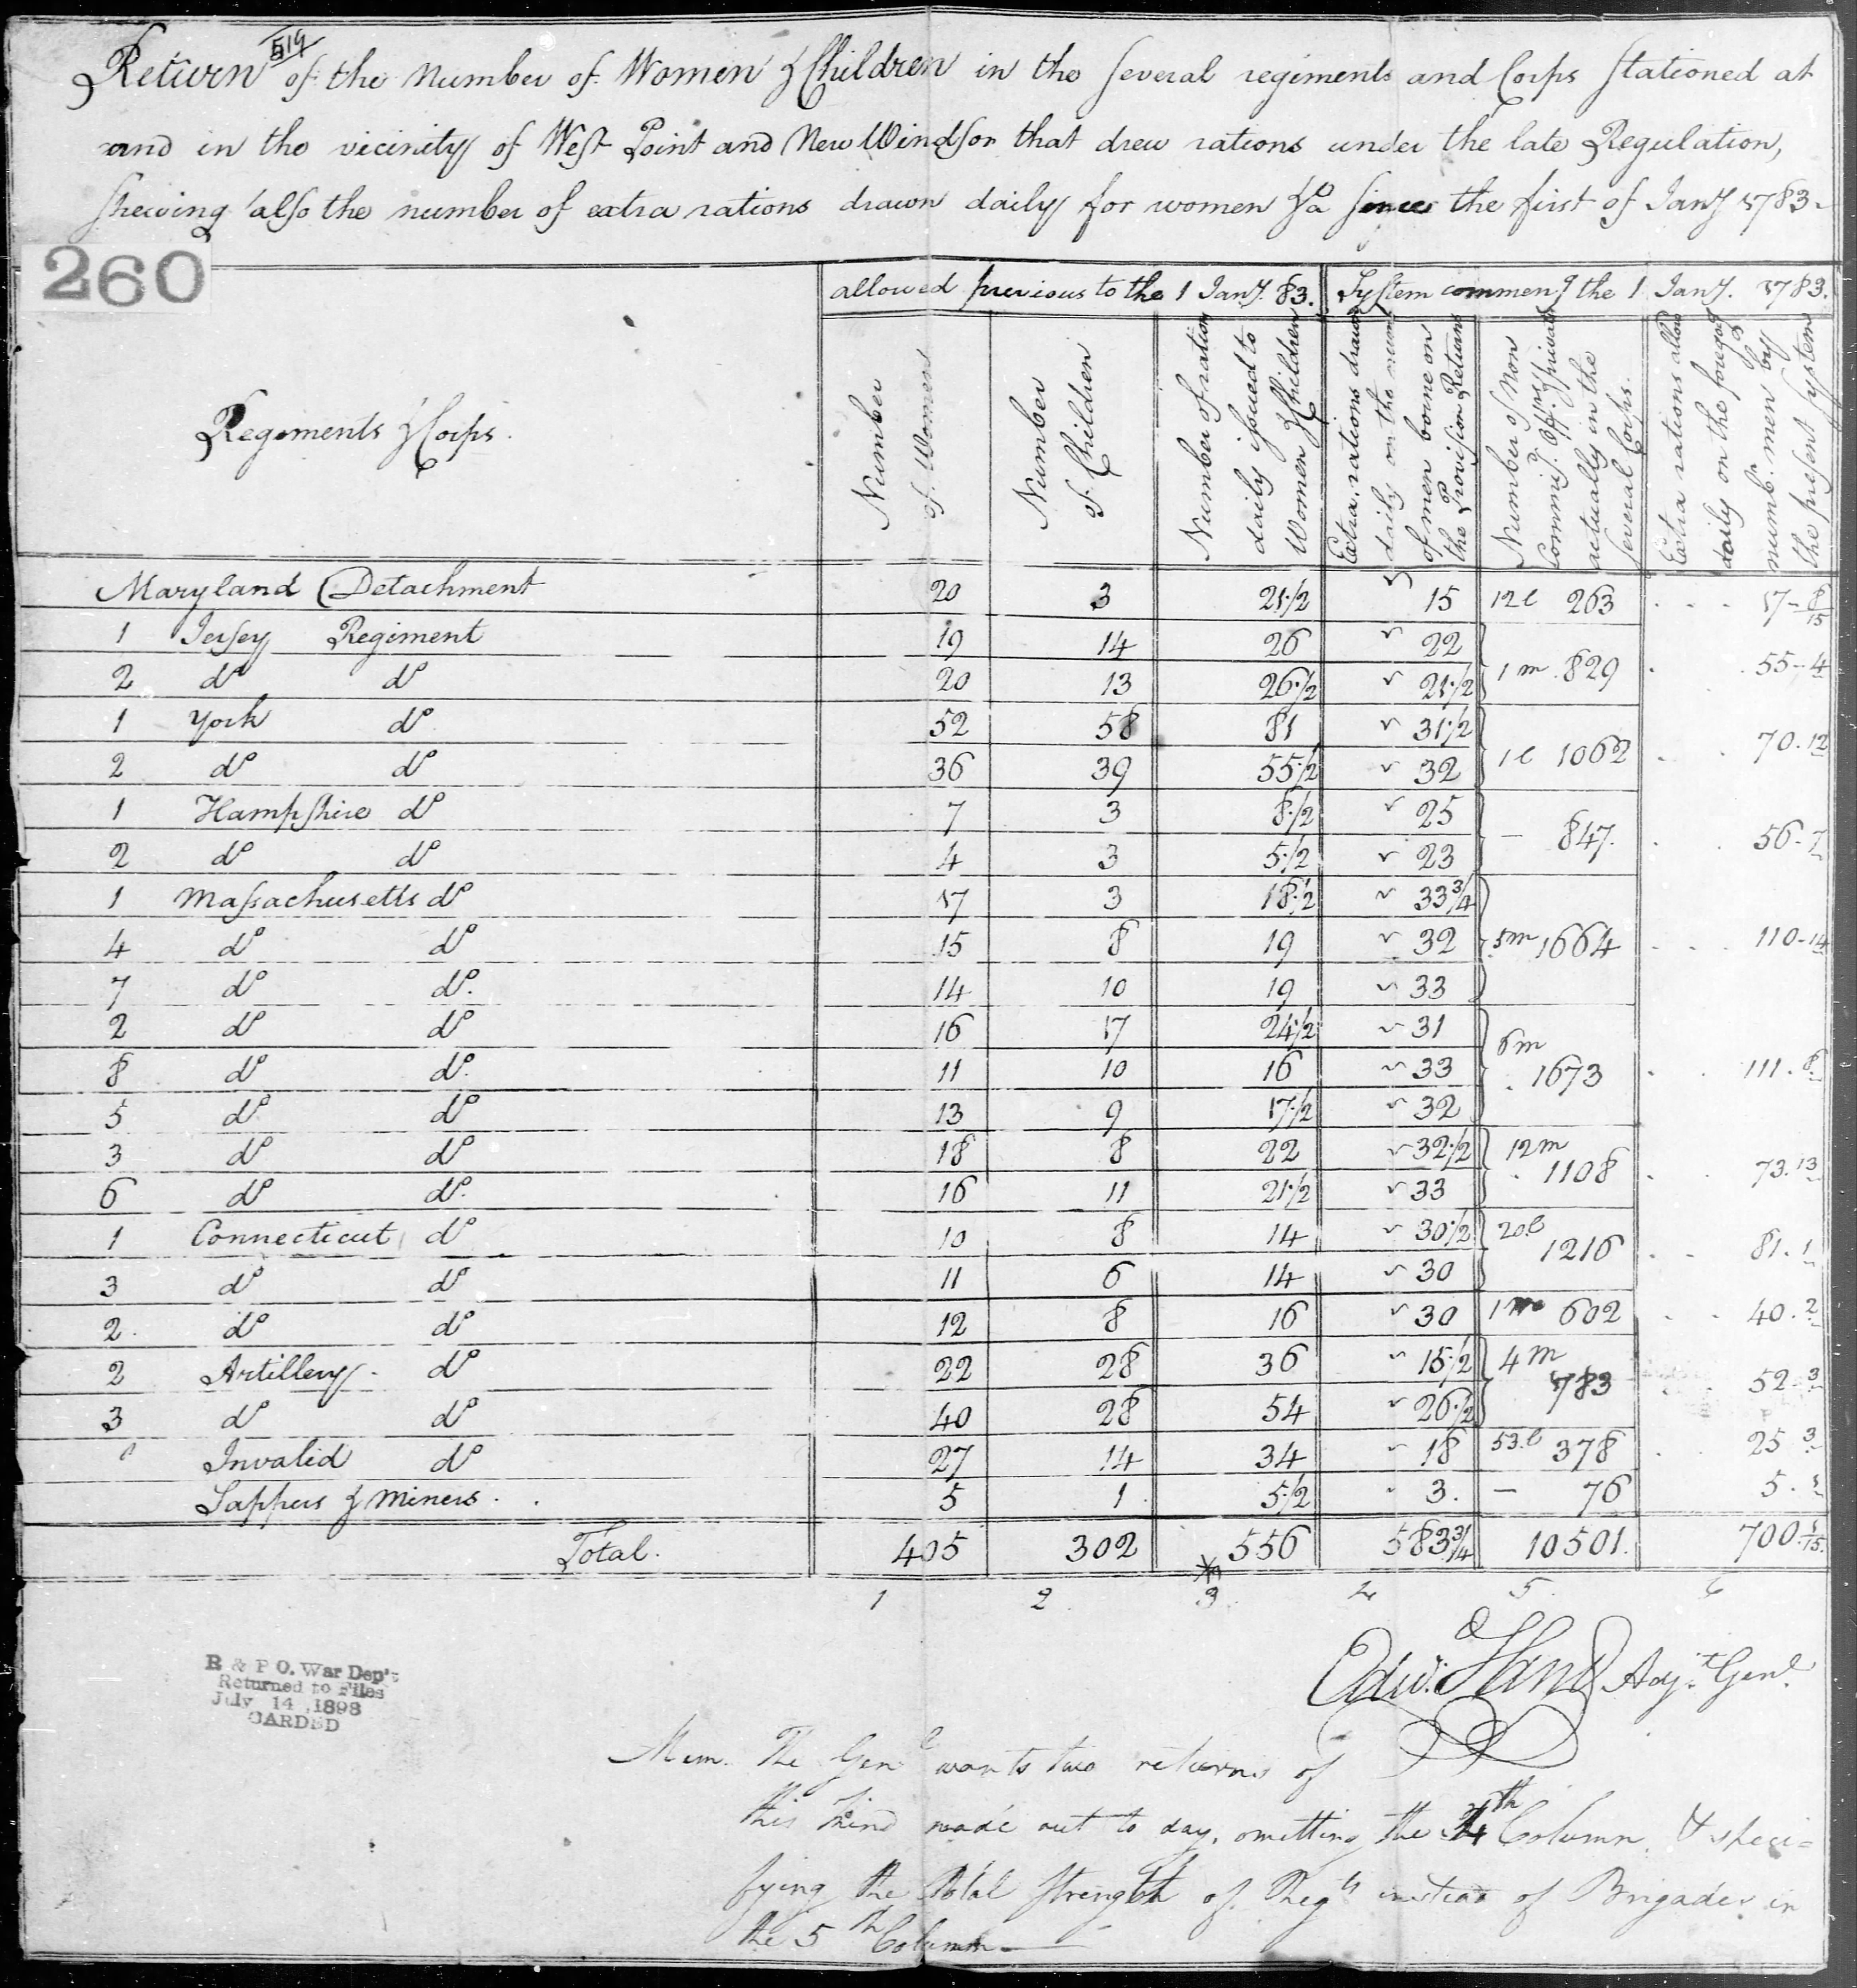 519
Return of the Number of Women & Children in the several regiments and Corps stationed at
and in the vicinity of West Point and New Windsor that drew rations under the late Regulation,
shewing also the number of extra rations drawn daily for women &ca since the first of Jany 1783.
260
Regiments & Corps.
allowed previous to the 1 Jany. 83.
System commencg the 1 Jany. 1783.
Number of Women
Number of Children
Number of rations daily issued to Women & Children
Extra rations drawn daily on the numr of men borne on the Provision Returns
Number of Non Commisd. Offrs. & privates actually in the several Corps.
Extra rations allowd daily on the foregog numbr. men by the present System
Maryland Detachment 20 3 21 1/2 15 12 l 263 17-8/15
1 Jersey Regiment 19 14 26 22
2 do do 20 13 26 1/2 21 1/2 1 m 829 55-4
1 York do 52 58 81 31 1/2
2 do do 36 39 55 1/2 32 1 l 1062 70.12
1 Hampshire do 7 3 8 1/2 25
2 do do 4 3 5 1/2 23 – 847. 56-7
1 Massachusetts do 17 3 18 1/2 33 3/4
4 do do 15 8 19 32 5m 1664 110-14
7 do do. 14 10 19 33
2 do do 16 17 24 1/2 31
8 do do. 11 10 16 33 6m 1673 111.8
5 do do 13 9 17 1/2 32
3 do do 18 8 22 32 1/2
6 do do. 16 11 21 1/2 33 12m 1108 73.13
1 Connecticut do 10 8 14 30 1/2
3 do do 11 6 14 30 20.l 1216 81.1
2. do do 12 8 16 30 1 m 602 40.2
2 Artillery. do 22 28 36 15 1/2
3 do do 40 28 54 26 1/2 4 m 783 52-3
Invalid do 27 14 34 18 53.l 378 25 3
Sappers & Miners. 5 1 5 1/2 3. – 76 5.1
Total. 405 302 556 583 3/4 10501. 700.1/15.
1 2 3 4 5 6
Edwd. Hand Adjt. Genl.
R & P O. War Dep't
Returned to Files
July 14, 1898
CARDED
Mem. The Genl wants two returns of
this kind made out to day, omitting the 4th Column, & speci=
fying the total strength of Regts instead of Brigades in
the 5th Column —